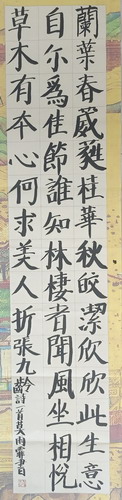 蘭葉春葳蕤桂華秋皎潔欣欣此生意
自尒為佳節誰知林棲者聞風坐相悅
草木有本心何求美人折張九齡詩